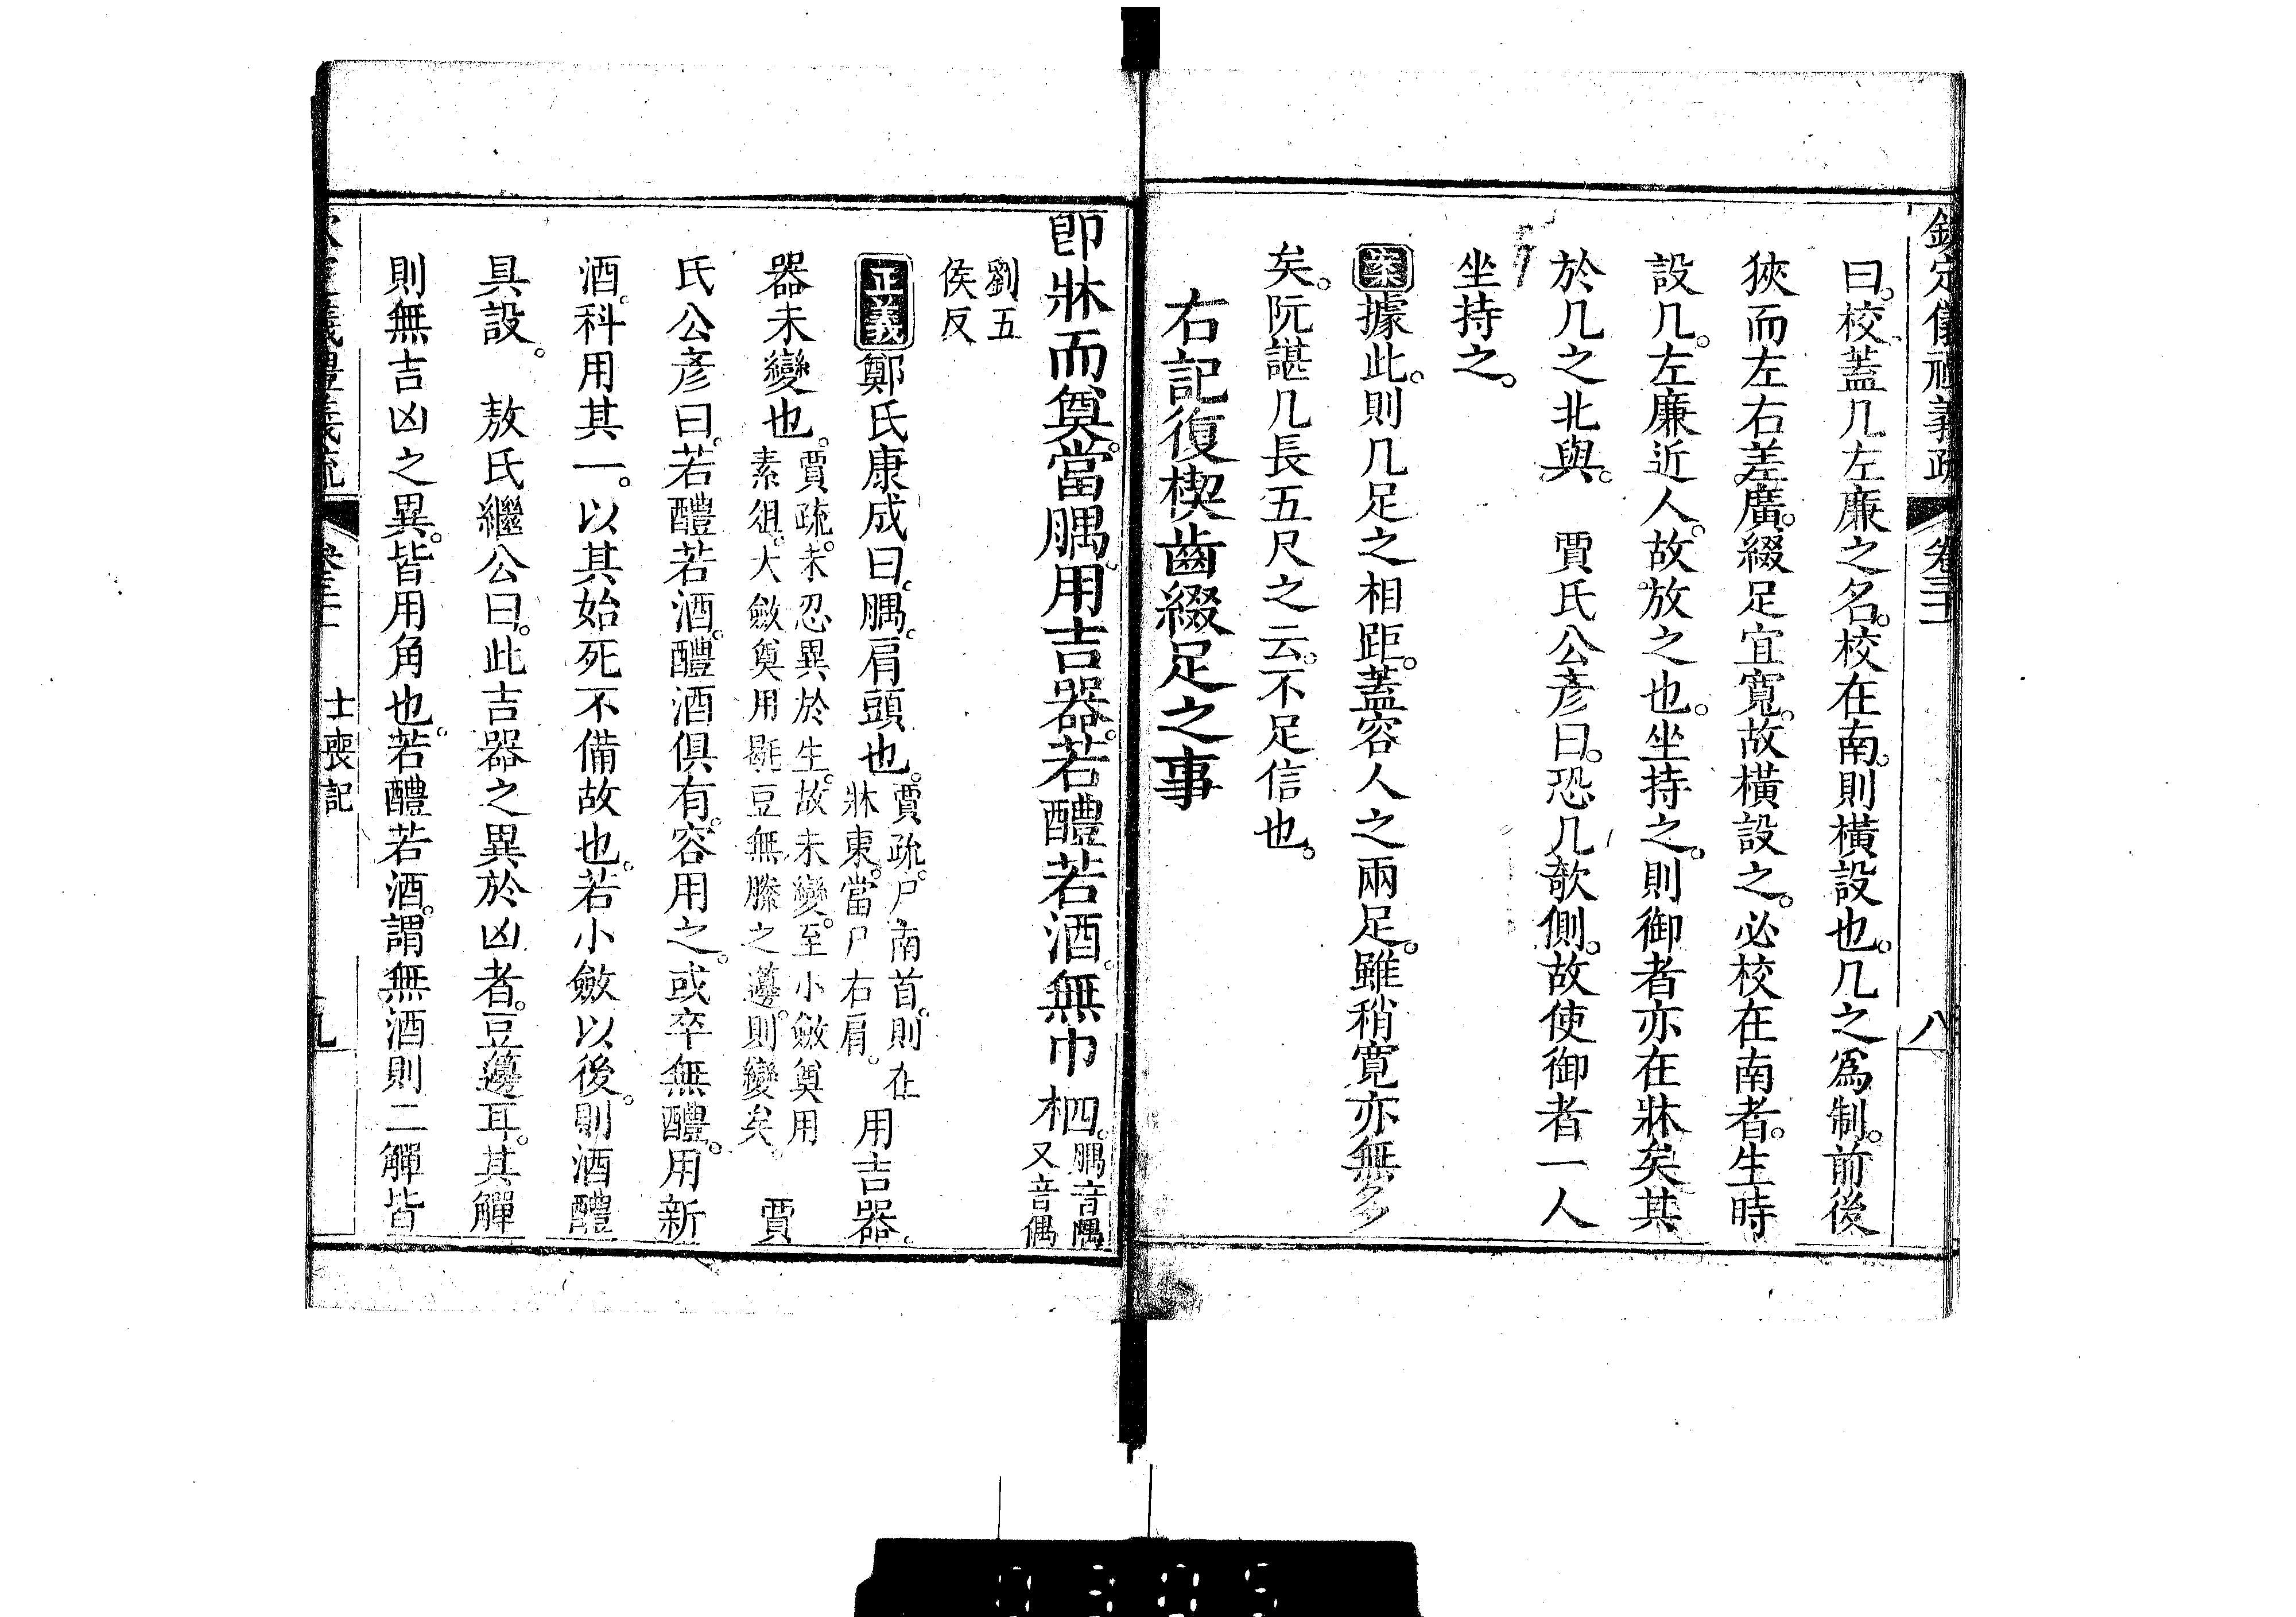 欽定儀禮義疏 卷三十一 八
曰。校。蓋几左廉之名。校在南。則橫設也。几之爲制。前後
狹而左右差廣。綴足宜寬。故橫設之。必校在南者。生時
設几。左廉近人。故放之也。坐持之。則御者亦在牀矣。其
於几之北與。 賈氏公彥曰。恐几欹側。故使御者一人
坐持之。
案據此。則几足之相距。蓋容人之兩足。雖稍寬亦無多
矣。阮諶几長五尺之云。不足信也。
右記復楔齒綴足之事
卽牀而奠。當腢。用吉器。若醴若酒。無巾柶。腢音隅又音偶
劉五侯反
正義鄭氏康成曰。腢。肩頭也。賈疏。尸南首。則在牀東。當尸右肩。 用吉器。
器未變也。賈疏。未忍異於生。故未變。至小斂奠用素俎。大斂奠用毼豆無縢之籩。則變矣。 賈
氏公彥曰。若醴若酒。醴酒俱有。容用之。或卒無醴。用新
酒。科用其一。以其始死不備故也。若小斂以後。則酒醴
具設。 敖氏繼公曰。此吉器之異於凶者。豆籩耳。其觶
則無吉凶之異。皆用角也。若醴若酒。謂無酒則二觶皆
士喪記